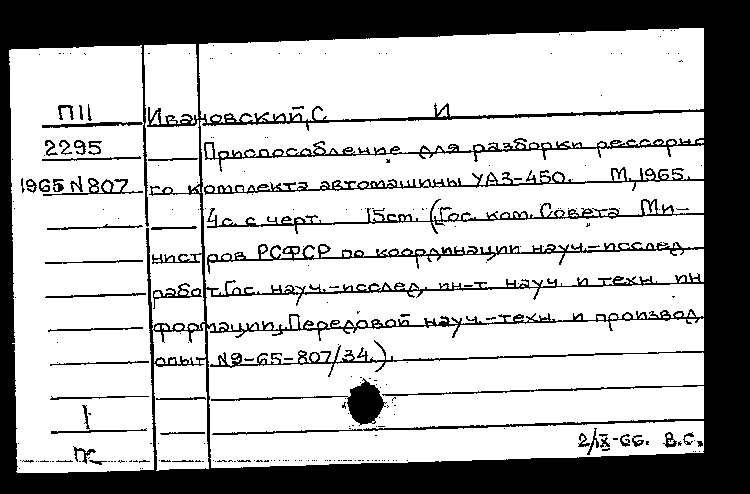 П11 Ивановский, С И
2295 Приспособление для разборки рессорно
1965 N 807 го комплекта автомашины УАЗ-450. М, 1965.
4с. с черт. 15cm. (Гос. ком. Совета Ми-
нистров РСФСР по координации науч.-исслед
работ. Гос. науч.-исслед. ин-т. науч. и техн. ин
формации, Передовой науч.-техн. и производ.
опыт N9-65-807/34.).
1
2/IX-66. В.С.